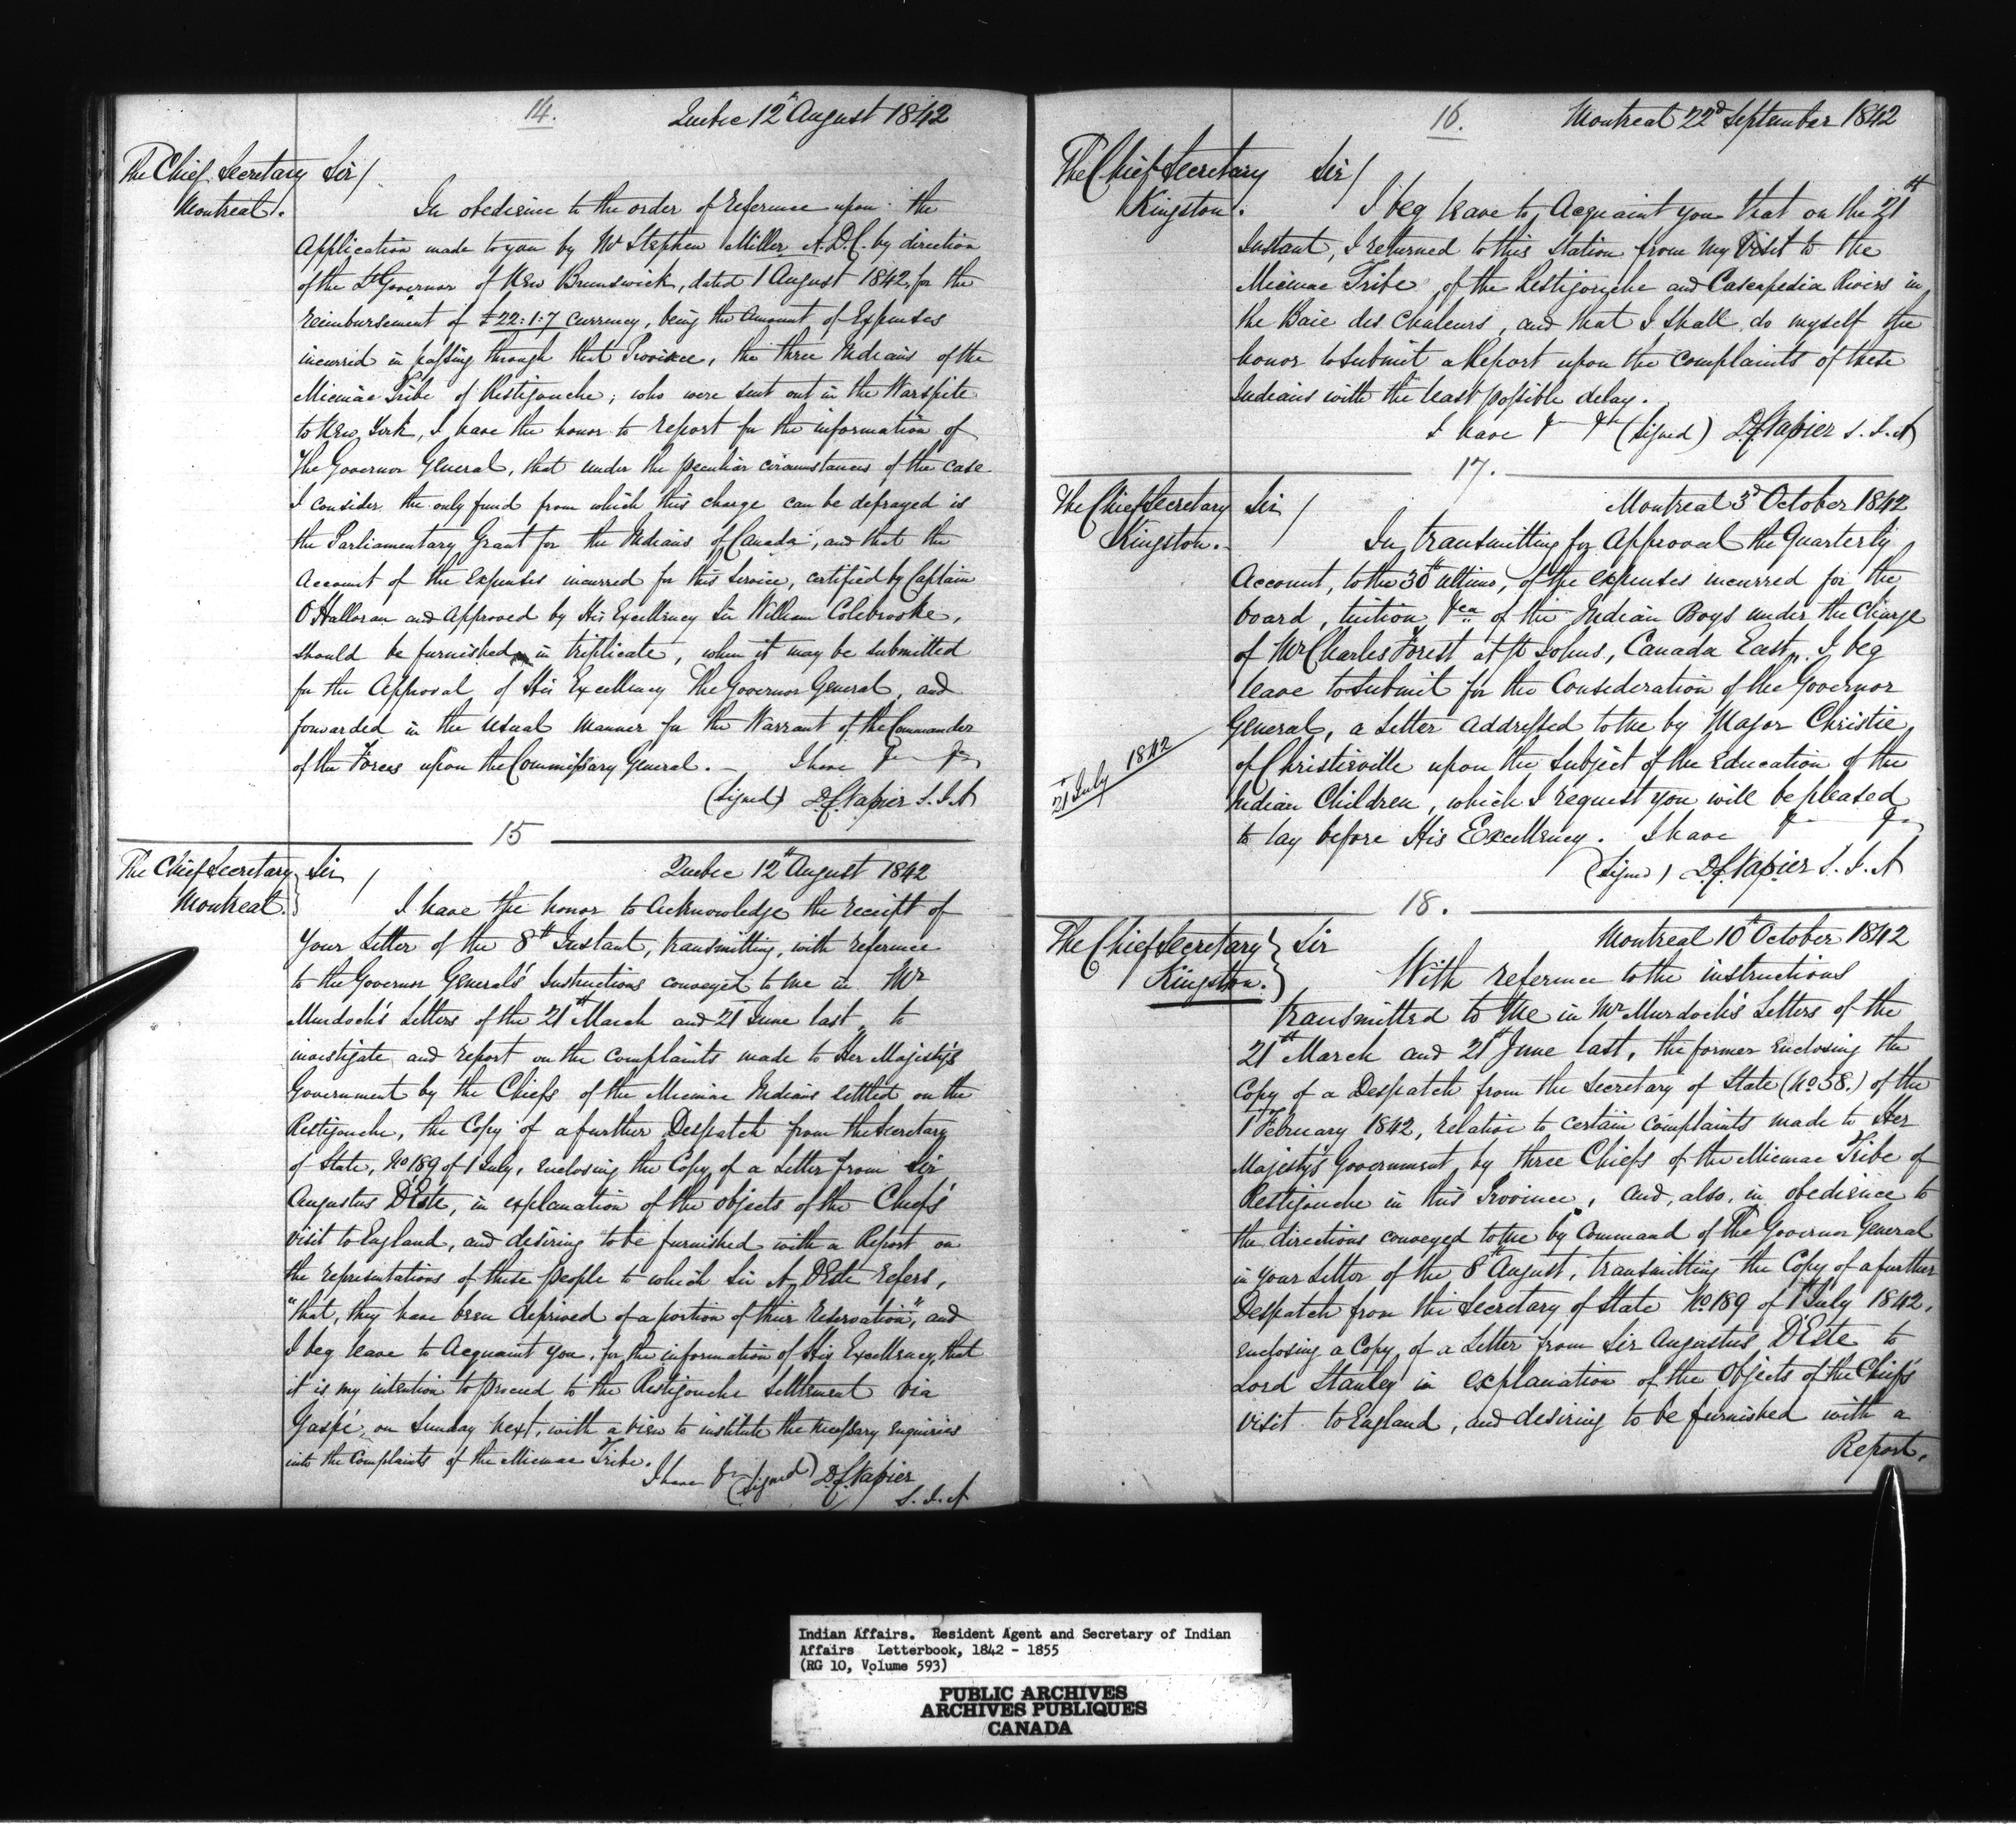 14.
Quebec 12th August 1842
The Chief Secretary
Montreal.
Sir/
In obedience to the order of reference upon the
Application made to you by Mr Stephen Miller A.D.C. by direction
of the Lt Governor of New Brunswick, dated 1 August 1842, for the
reimbursement of £22:1:7 Currency, being the Amount of Expenses
incurred in passing through that Province, the three Indians of the
Micmac Tribe of Restigouche, who were sent out in the Warspite
to New York, I have the honor to report for the information of
The Governor General, that under the peculiar circumstances of the case
I consider the only fund from which this charge can be defrayed is
the Parliamentary Grant for the Indians of Canada, and that the
Account of the Expenses incurred for this Service, certified by Captain
O'Halloran and Approved by His Excellency Sir William Colebrooke,
should be furnished in triplicate, when it may be submitted
for the Approval of His Excellency The Governor General, and
forwarded in the usual manner for the Warrant of the Commander
of the Forces upon the Commissary General. – I have &c &c
(Signed) D.C. Napier S.I.A
15
The Chief Secretary
Montreal.
Sir/
Quebec 12th August 1842
I have the honor to Acknowledge the receipt of
Your Letter of the 8th Instant, transmitting, with reference
to the Governor General's Instructions conveyed to me in Mr
Murdoch's Letters of the 21st March and 21st June last, to
investigate and report on the complaints made to Her Majesty's
Government by the Chiefs of the Micmac Indians settled on the
Restigouche, the Copy of a further Despatch from the Secretary
of State, No 189 of 1 July, enclosing the Copy of a Letter from Sir
Augustus D'Este, in explanation of the objects of the Chiefs'
visit to England, and desiring to be furnished with a Report on
the representations of these people to which Sir A. D'Este refers,
"that, they have been deprived of a portion of their reservation", and
I beg leave to Acquaint you, for the information of His Excellency, that
it is my intention to proceed to the Restigouche Settlement via
Gaspé, on Sunday next, with a view to institute the necessary enquiries
into the Complaints of the Micmac Tribe.
I have &c (Signed) D.C. Napier
S.I.A
16.
Montreal 22d September 1842
The Chief Secretary
Kingston.
Sir/
I beg leave to Acquaint you that on the 21st
Instant, I returned to this Station from my Visit to the
Micmac Tribe, of the Restigouche and Cascapedia Rivers in
the Baie des Chaleurs, and that I shall do myself the
honor to submit a Report upon the Complaints of these
Indians with the least possible delay.
I have &c &c (Signed) D.C. Napier S.I.A
17.
The Chief Secretary
Kingston.
Sir/
Montreal 3d October 1842
In transmitting for Approval the Quarterly
Account, to the 30th Ultimo, of the expenses incurred for the
board, tuition &ca of the Indian Boys under the Charge
of Mr Charles Forest at St Johns, Canada East, I beg
leave to submit for the Consideration of the Governor
General, a Letter addressed to me by Major Christie
21st July 1842
of Christieville upon the Subject of the Education of the
Indian Children, which I request you will be pleased
to lay before His Excellency. I have &c &c
(Signed) D.C. Napier S.I.A
18.
The Chief Secretary
Kingston.
Sir
Montreal 10th October 1842
With reference to the instructions
transmitted to me in Mr Murdoch's Letters of the
21st March and 21st June last, the former Enclosing the
Copy of a Despatch from the Secretary of State (No 58.) of the
1st February 1842, relative to certain complaints made to Her
Majesty's Government by three Chiefs of the Micmac Tribe of
Restigouche in this Province, and, also, in obedience to
the directions conveyed to me by Command of The Governor General
in your Letter of the 8th August, transmitting the Copy of a further
Despatch from the Secretary of State No 189 of 1st July 1842,
enclosing a Copy of a Letter from Sir Augustus D'Este to
Lord Stanley in explanation of the Objects of the Chiefs'
visit to England, and desiring to be furnished with a
Report.
Indian Affairs. Resident Agent and Secretary of Indian
Affairs Letterbook, 1842 - 1855
(RG 10, Volume 593)
PUBLIC ARCHIVES
ARCHIVES PUBLIQUES
CANADA